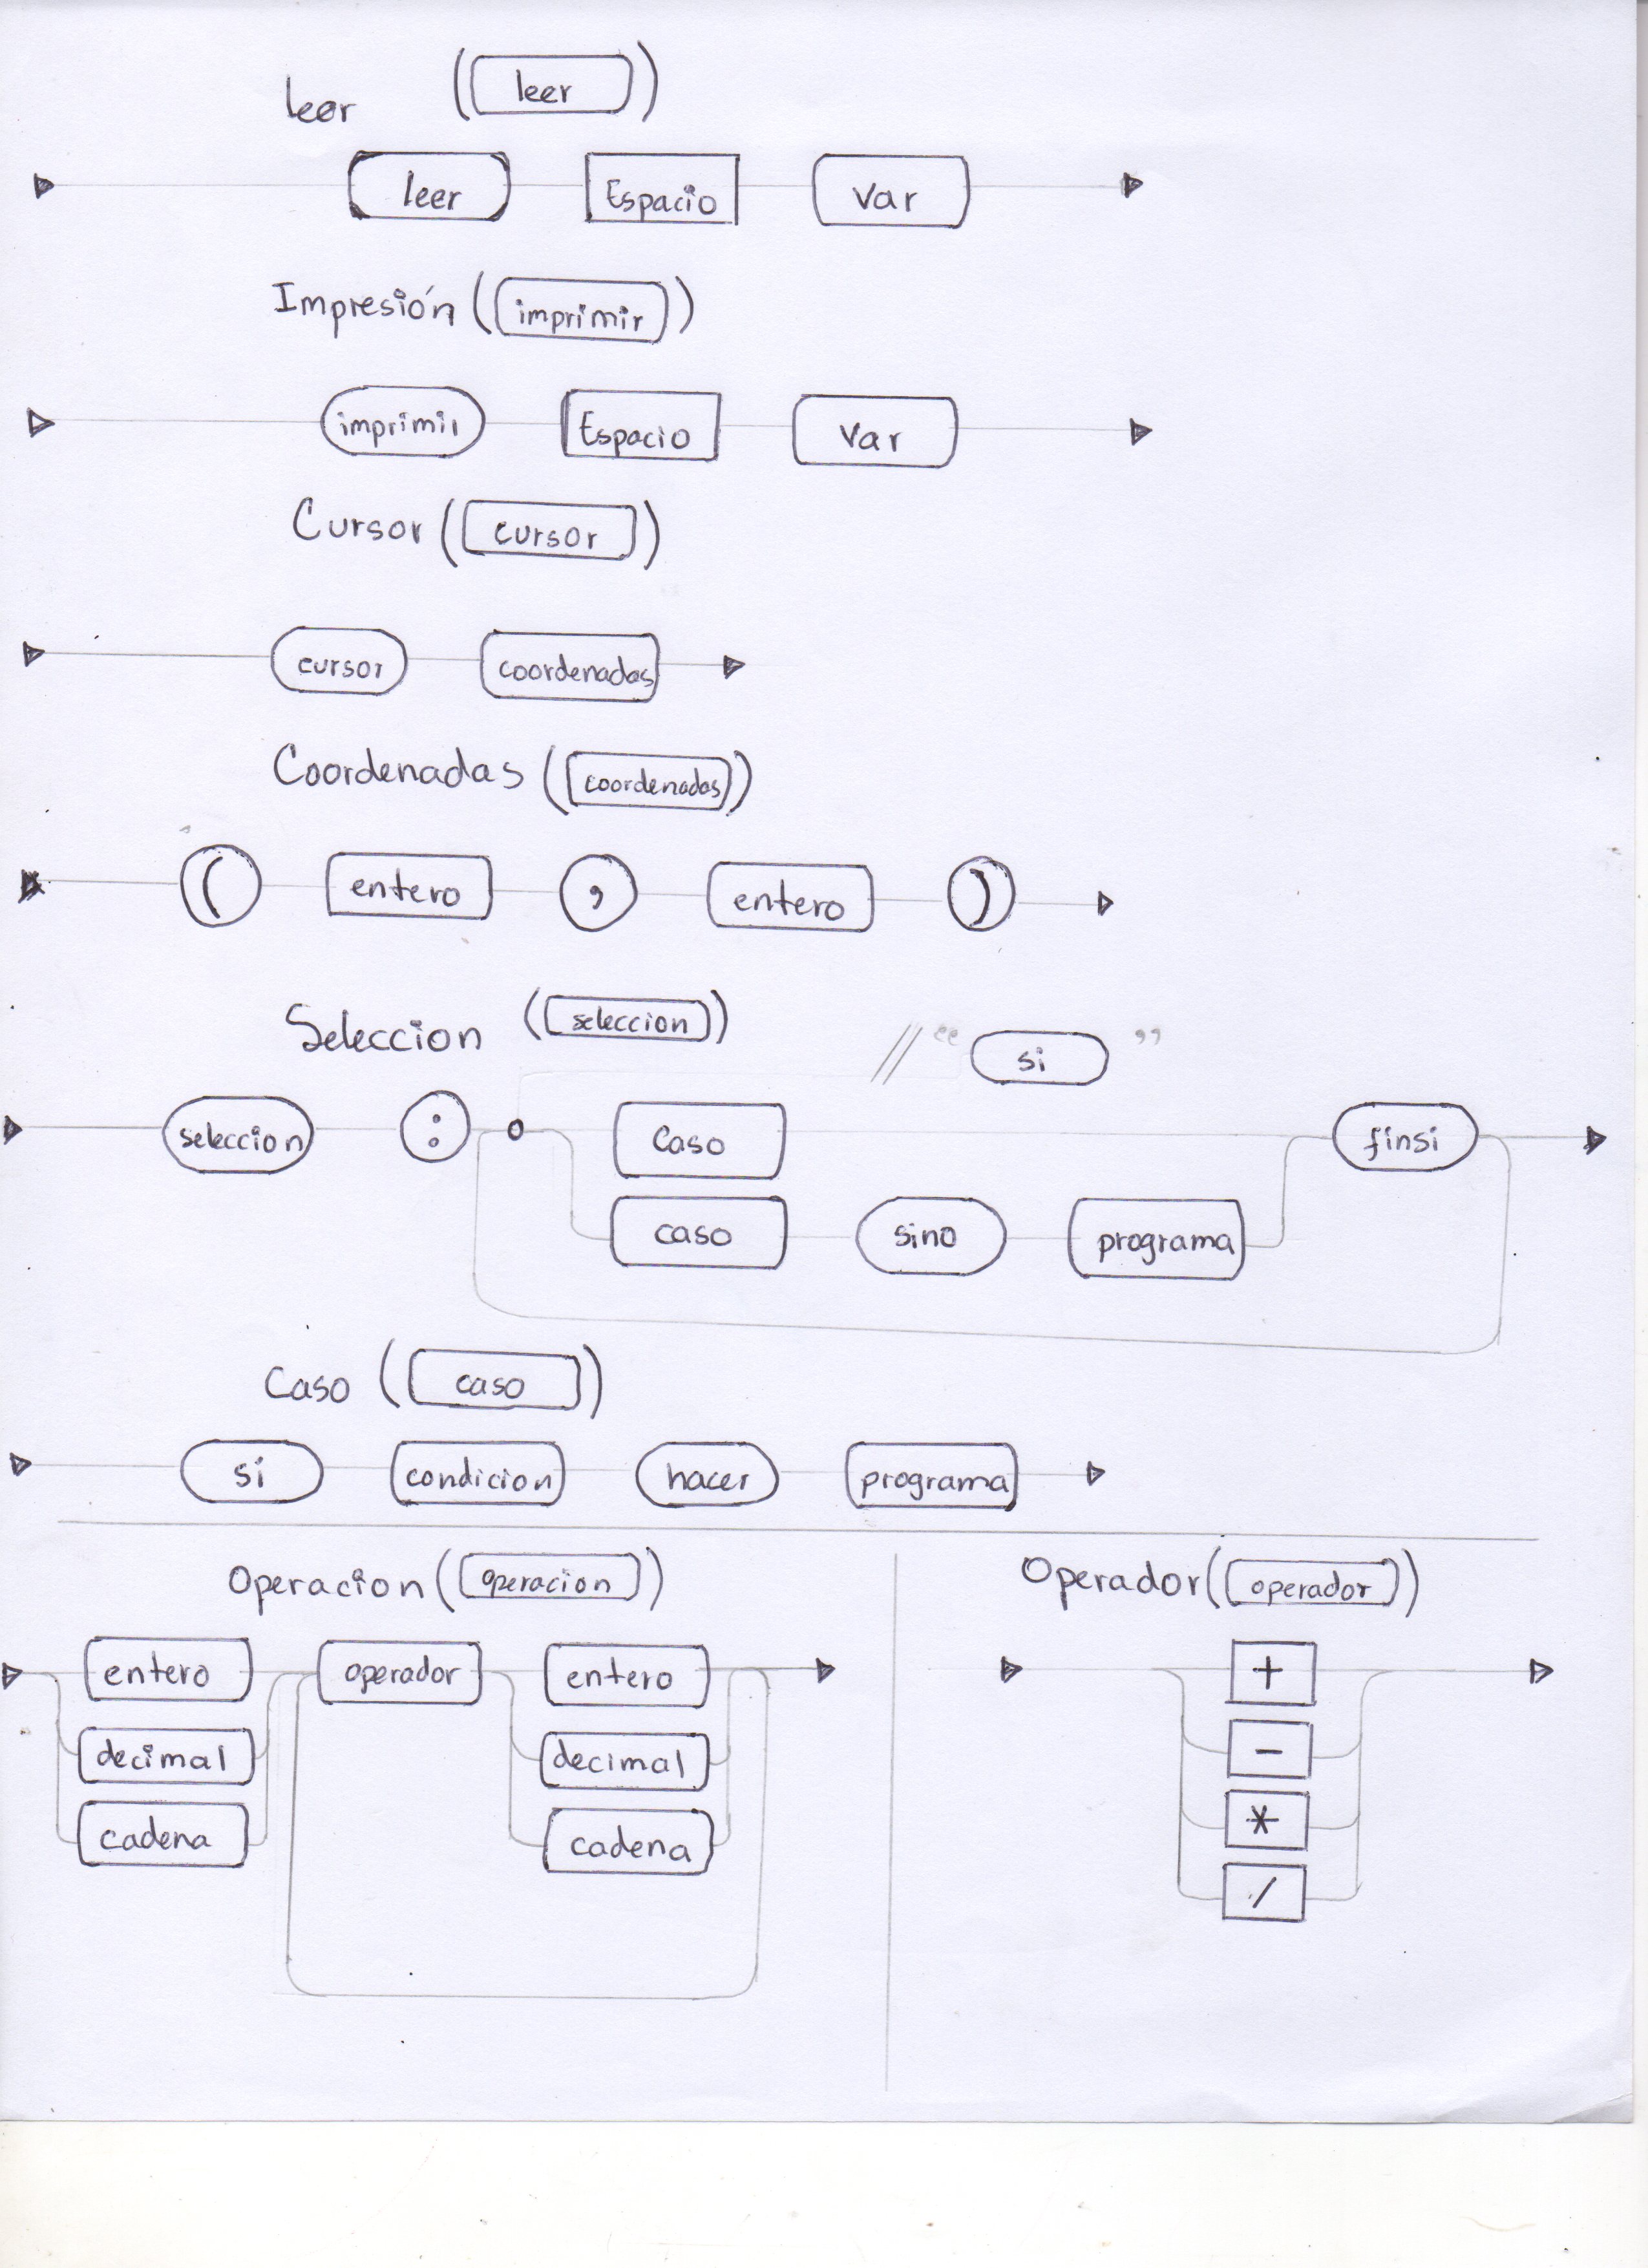 leer (leer)
leer Espacio Var
Impresión (imprimir)
imprimir Espacio Var
Cursor (cursor)
cursor coordenadas
Coordenadas (coordenadas)
( entero , entero )
Seleccion (seleccion)
// “ si ”
seleccion : Caso finsi
caso sino programa
Caso (caso)
si condicion hacer programa
Operacion (operacion)
entero operador entero
decimal decimal
cadena cadena
Operador (operador)
+
-
*
/